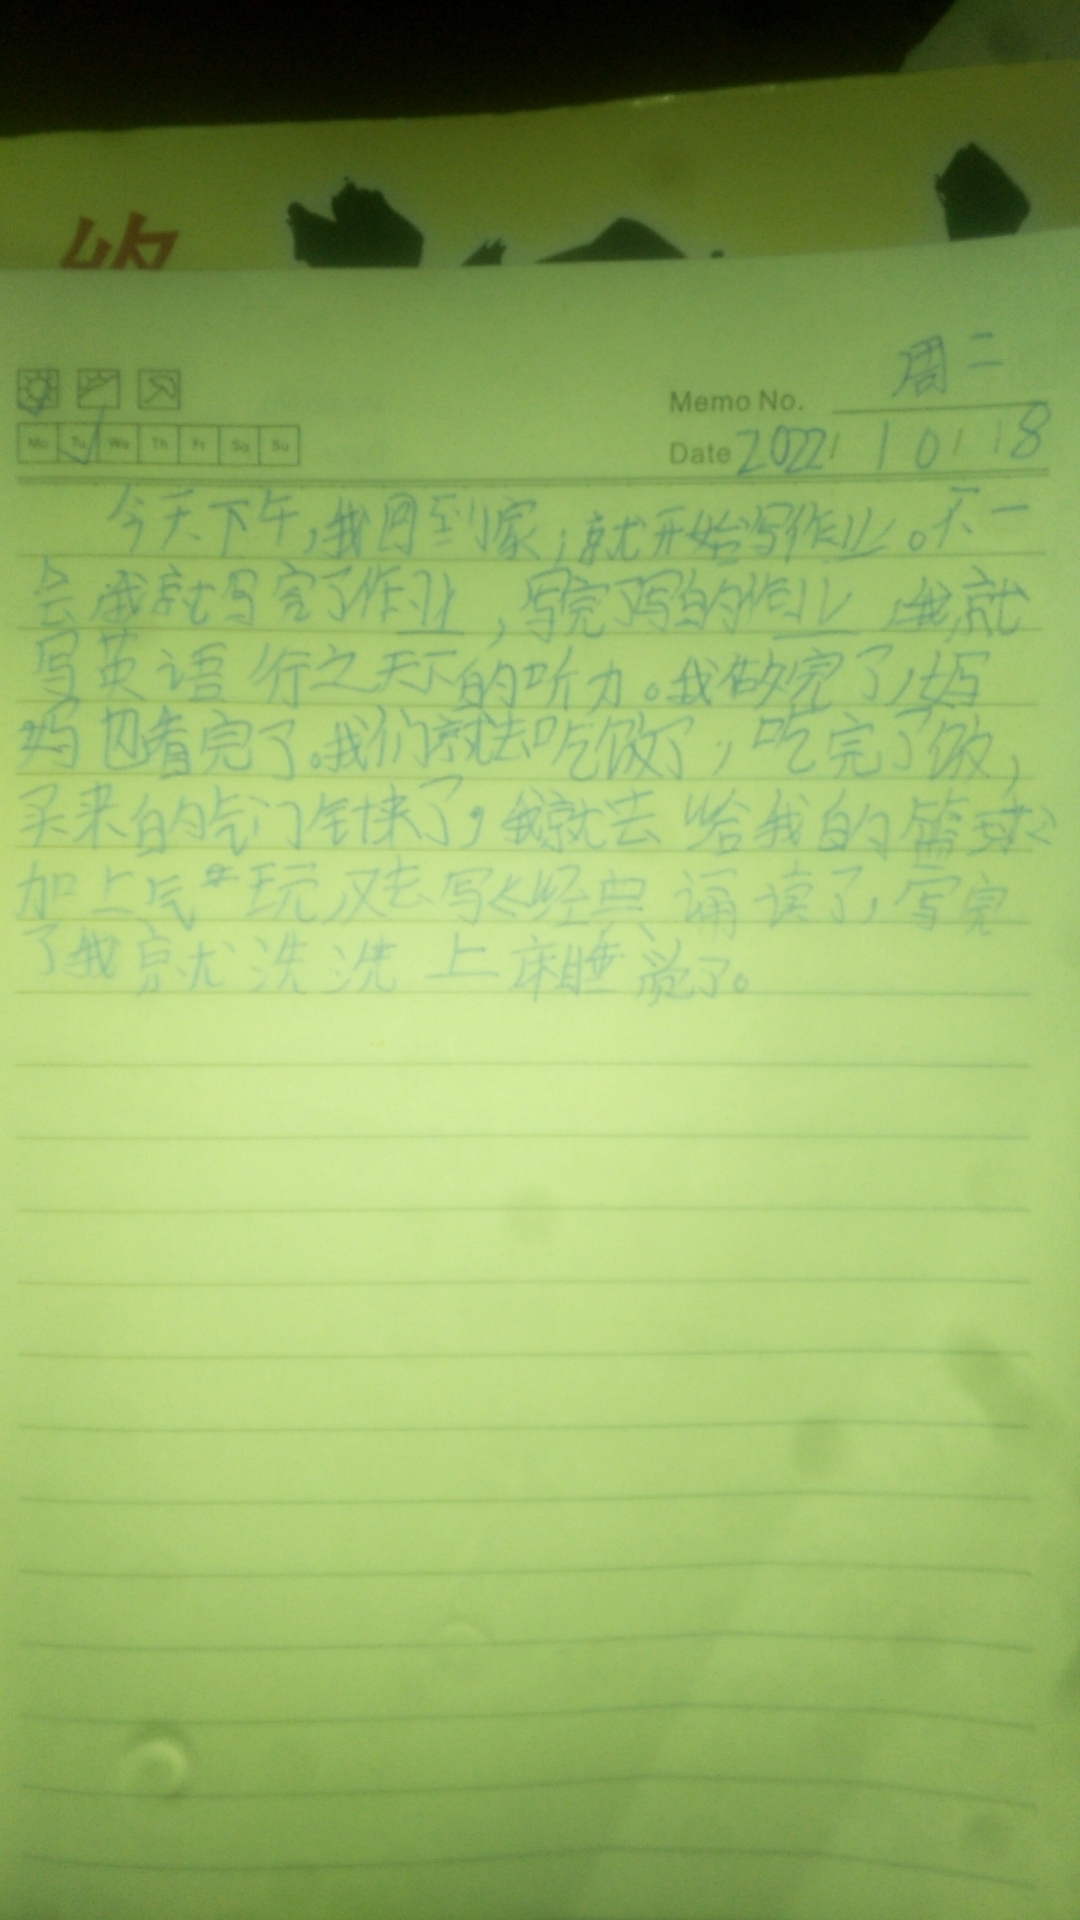 周二
Memo No.
Mo Tu We Th Fr Sa Su
Date 2022/10/18
今天下午,我回到家,就开始写作业。不一
会我就写完了作业,写完了写的作业,我就
写英语行之天下的听力。我做完了,妈
妈也看完了。我们就去吃饭了,吃完了饭,
买来的气门针来了,我就去给我的篮球
加上气 玩,又去写《经典诵读了,写完
了我就洗洗上床睡觉了。